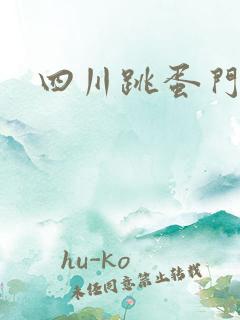 四川跳蛋門
hu-ko
未经同意禁止转载